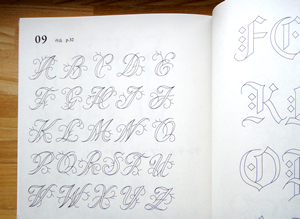 09 作品 p.32
A B C D E
F G H I J
K L M N O
P Q R S T U
V W X Y Z
F
K
O